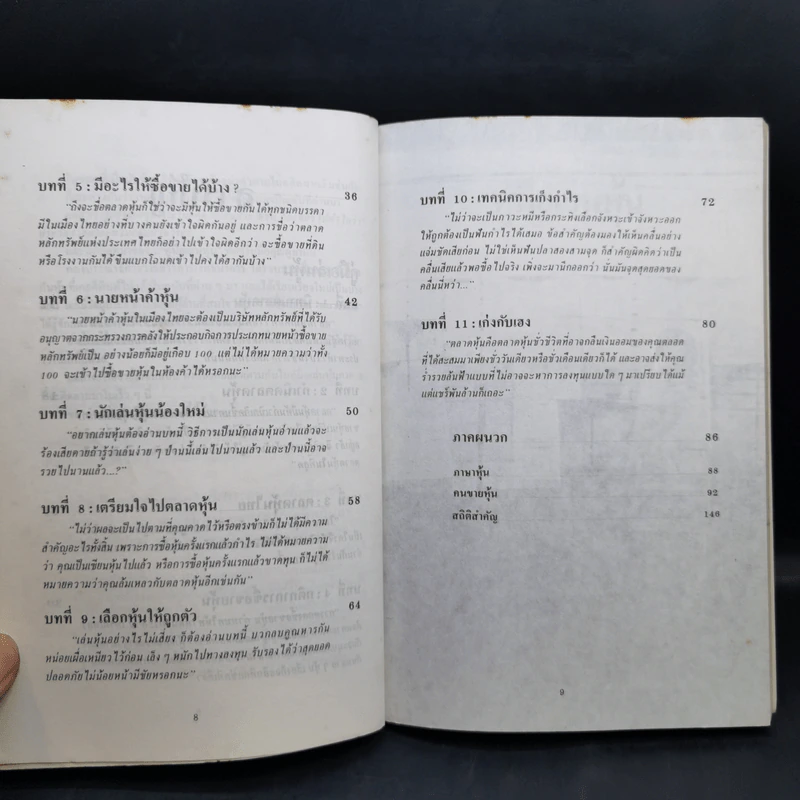 บทที่ 5 : มีอะไรให้ซื้อขายได้บ้าง ?
36
"ถึงจะชื่อตลาดหุ้นก็ใช่ว่าจะมีหุ้นให้ซื้อขายกันได้ทุกชนิดบรรดา
มีในเมืองไทยอย่างที่บางคนยังเข้าใจผิดกันอยู่ และการชื่อว่าตลาด
หลักทรัพย์แห่งประเทศไทยก็อย่าไปเข้าใจผิดอีกว่า จะซื้อขายที่ดิน
หรือโรงงานกันได้ ขืนแบกโฉนดเข้าไปคงได้ฮากันบ้าง"
บทที่ 6 : นายหน้าค้าหุ้น
42
"นายหน้าค้าหุ้นในเมืองไทยจะต้องเป็นบริษัทหลักทรัพย์ที่ได้รับ
อนุญาตจากกระทรวงการคลังให้ประกอบกิจการประเภทนายหน้าซื้อขาย
หลักทรัพย์เป็น อย่างน้อยก็มีอยู่เกือบ 100 แต่ไม่ได้หมายความว่าทั้ง
100 จะเข้าไปซื้อขายหุ้นในห้องค้าได้หรอกนะ"
บทที่ 7 : นักเล่นหุ้นน้องใหม่
50
"อยากเล่นหุ้นต้องอ่านบทนี้ วิธีการเป็นนักเล่นหุ้นอ่านแล้วจะ
ร้องเสียดายถ้ารู้ว่าเล่นง่าย ๆ ป่านนี้เล่นไปนานแล้ว และป่านนี้อาจ
รวยไปนานแล้ว...?"
บทที่ 8 : เตรียมใจไปตลาดหุ้น
58
"ไม่ว่าผลจะเป็นไปตามที่คุณคาดไว้หรือตรงข้ามก็ไม่ได้มีความ
สำคัญอะไรทั้งสิ้น เพราะการซื้อหุ้นครั้งแรกแล้วกำไร ไม่ได้หมายความ
ว่า คุณเป็นเซียนหุ้นไปแล้ว หรือการซื้อหุ้นครั้งแรกแล้วขาดทุน ก็ไม่ได้
หมายความว่าคุณล้มเหลวกับตลาดหุ้นอีกเช่นกัน"
บทที่ 9 : เลือกหุ้นให้ถูกตัว
64
"เล่นหุ้นอย่างไรไม่เสี่ยง ก็ต้องอ่านบทนี้ บวกลบคูณหารกัน
หน่อยเผื่อเหนียวไว้ก่อน เล็ง ๆ หนักไปทางลงทุน รับรองได้ว่าสุดยอด
ปลอดภัยไม่น้อยหน้ามีชัยหรอกนะ"
8
บทที่ 10 : เทคนิคการเก็งกำไร
72
"ไม่ว่าจะเป็นภาวะหมีหรือกระทิงเลือกจังหวะเข้าจังหวะออก
ให้ถูกต้องเป็นฟันกำไรได้เสมอ ข้อสำคัญต้องมองให้เห็นคลื่นอย่าง
แจ่มชัดเสียก่อน ไม่ใช่เห็นฟันปลาสองสามจุด ก็สำคัญผิดคิดว่าเป็น
คลื่นเสียแล้วพอซื้อไปจริง เพิ่งจะมานึกออกว่า นั่นมันจุดสุดยอดของ
คลื่นนี่หว่า..."
บทที่ 11 : เก่งกับเฮง
80
"ตลาดหุ้นคือตลาดหุ้นชั่วชีวิตที่อาจกลืนเงินออมของคุณตลอด
ที่ได้สะสมมาเพียงชั่ววันเดียวหรือชั่วเดือนเดียวก็ได้ และอาจส่งให้คุณ
ร่ำรวยล้นฟ้าแบบที่ไม่อาจจะหาการลงทุนแบบใด ๆ มาเปรียบได้แม้
แต่แชร์พันล้านก็เถอะ"
ภาคผนวก
86
ภาษาหุ้น
88
คนขายหุ้น
92
สถิติสำคัญ
146
9